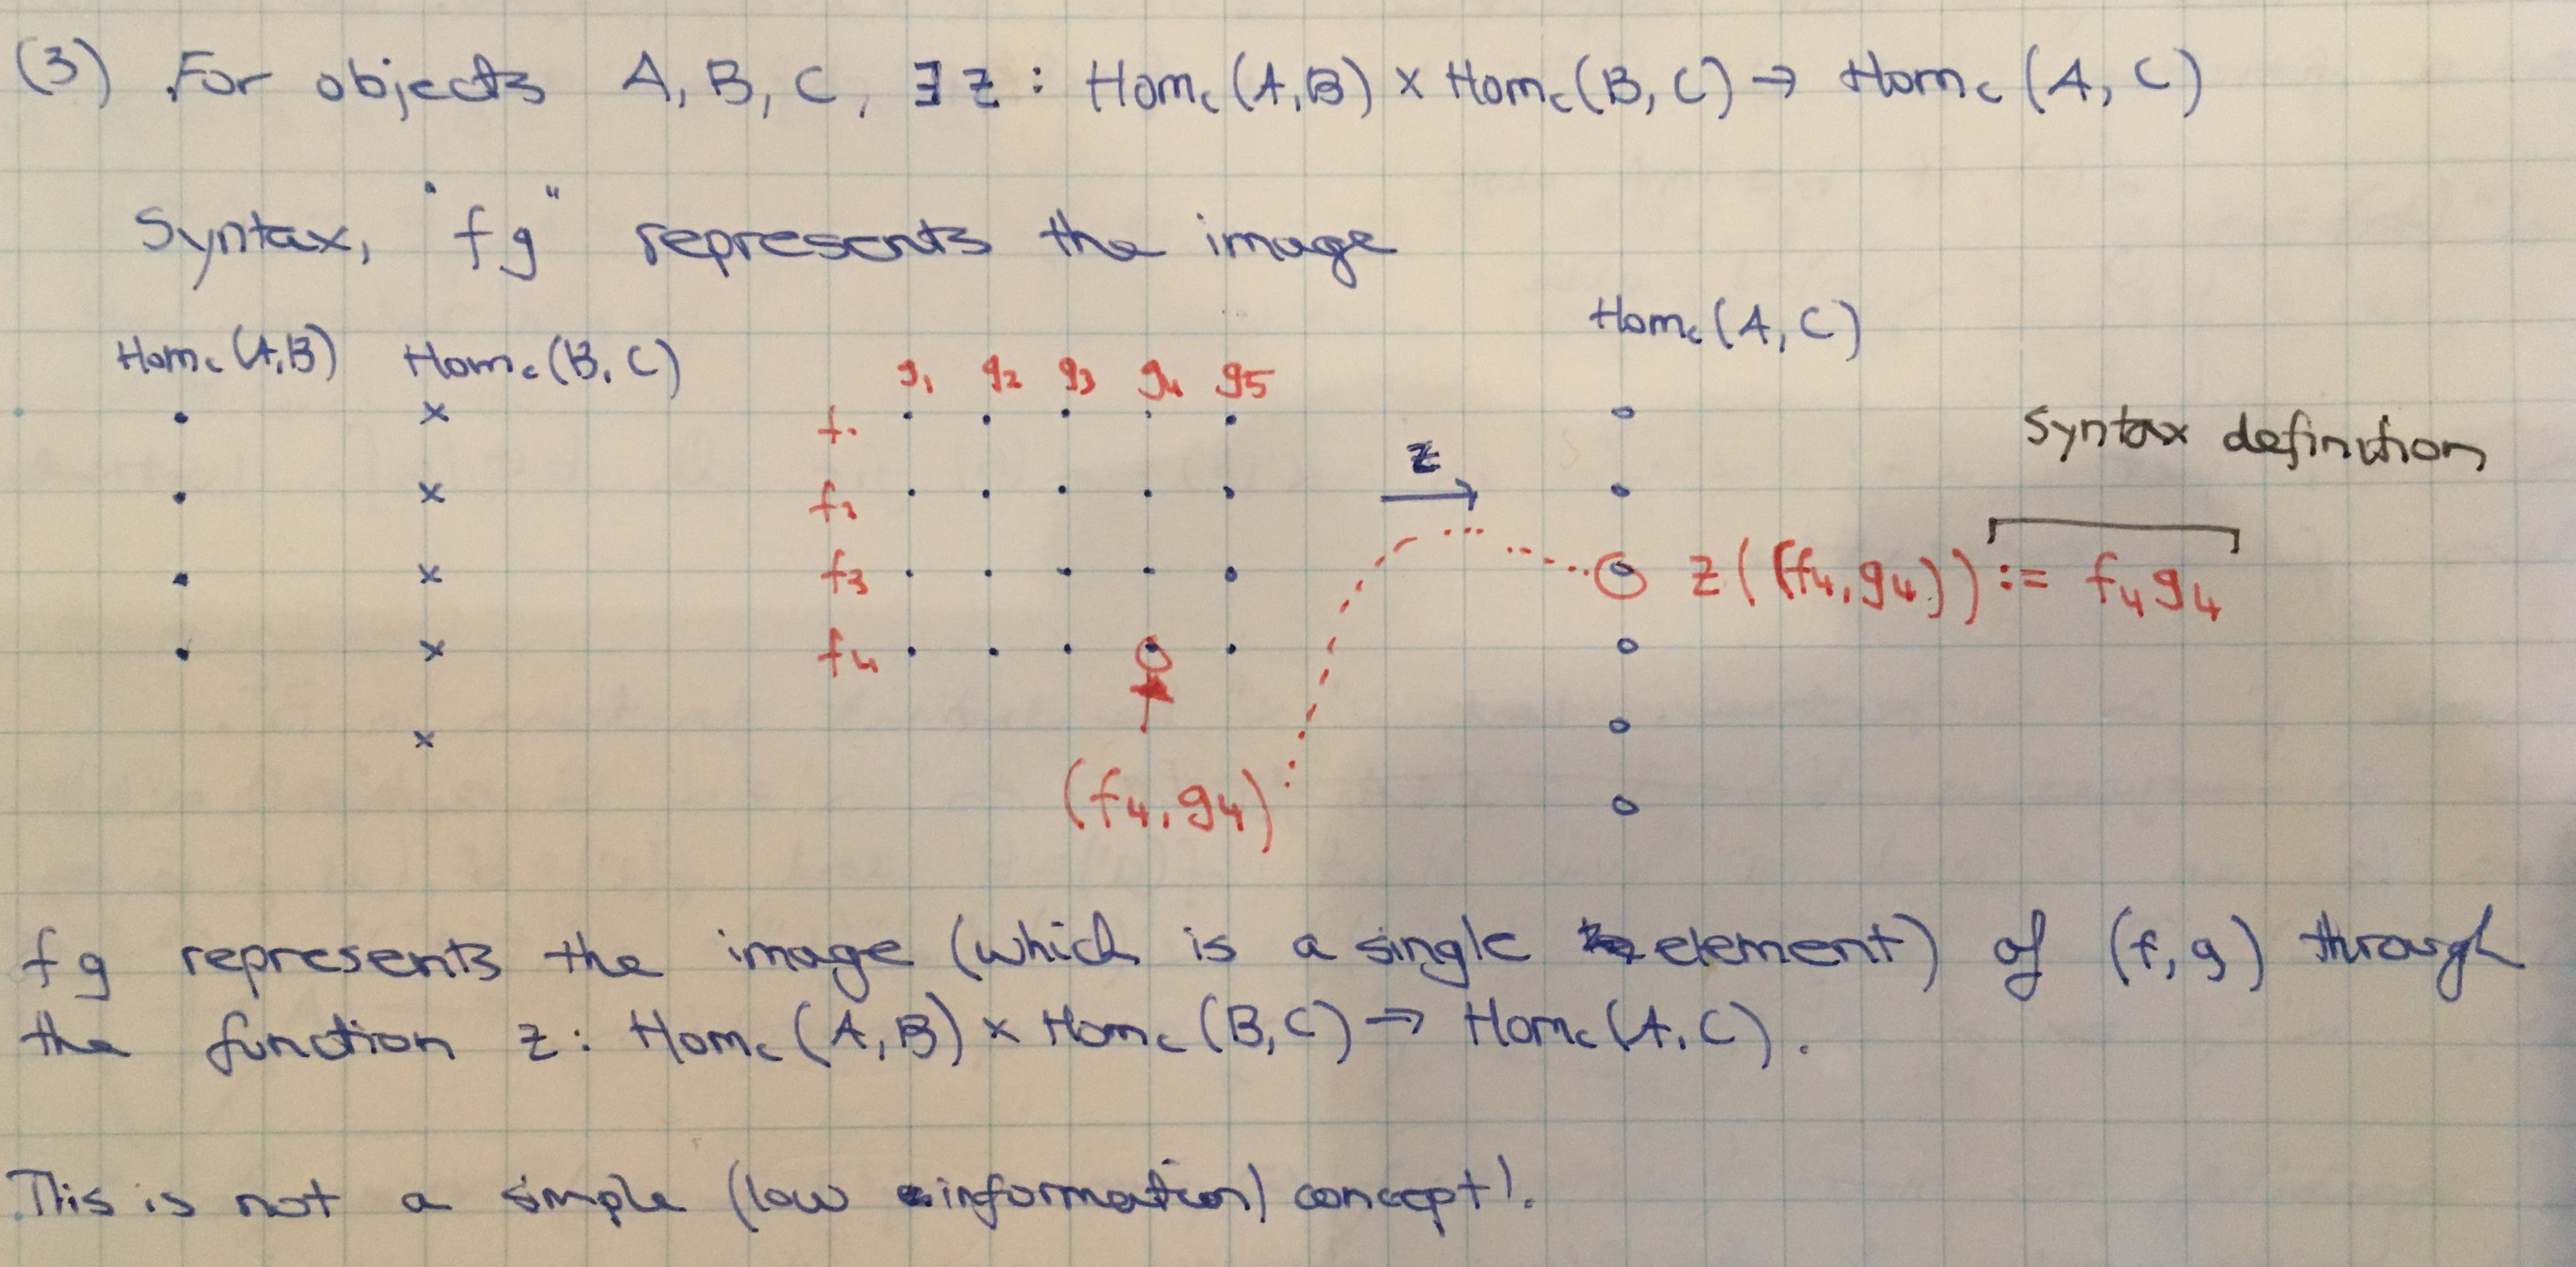 (3) For objects A, B, C, ∃ z : Hom_c(A,B) × Hom_c(B,C) → Hom_c(A, C)
Syntax, "fg" represents the image
Hom_c(A,C)
Hom_c(A,B) Hom_c(B,C)
g₁ g₂ g₃ g₄ g₅
f₁
Syntax definition
z
f₂
f₃
z((f₄,g₄)) := f₄g₄
f₄
(f₄,g₄)
fg represents the image (which is a single element) of (f,g) through
the function z: Hom_c(A,B) × Hom_c(B,C) → Hom_c(A,C).
This is not a simple (low information) concept!.